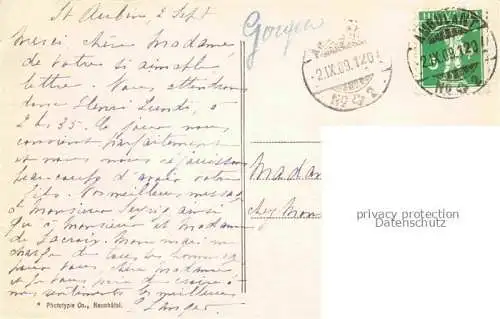 St Aubin, 2 Sept
Merci chère Madame,
de votre si aimable
lettre. Nous attendons
donc Henri Lundi, à
2 h. 35. Ce jour nous
convient parfaitement
et nous nous réjouissons
beaucoup d'avoir votre
fils. Nos meilleurs messages
à Monsieur ainsi
qu'à Monsieur et Madame
de Lacroix. Mon mari me
charge de tous ses hommages
pour vous, chère Madame,
et je vous prie de croire à
nos sentiments les meilleurs
Phototypie Co., Neuchâtel.
2.IX.09.12
No 2
2.IX.09.12
No 2
Madam
chez Mons
privacy protection
Datenschutz